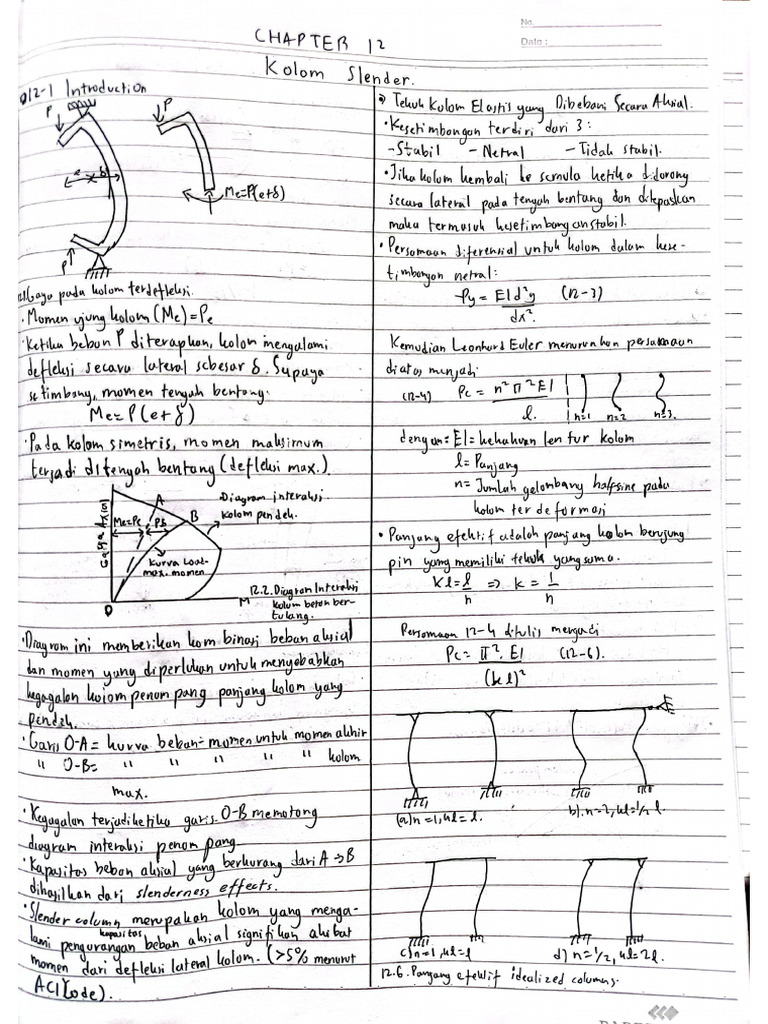 No.
Date :
CHAPTER 12
Kolom Slender.
12-1 Introduction
P
e
δ
P
P
Mc=P(e+δ)
Gaya pada kolom terdefleksi.
• Momen ujung kolom (Me) = Pe
• Ketika beban P diterapkan, kolom mengalami
defleksi secara lateral sebesar δ. Supaya
setimbang, momen tengah bentang:
Mc=P(e+δ)
• Pada kolom simetris, momen maksimum
terjadi ditengah bentang (defleksi max.)
Gaya Axial
A
B
Pδ
Diagram interaksi
kolom pendek.
Kurva Load-
max. momen
O
M
12.2. Diagram Interaksi
kolom beton ber-
tulang.
• Diagram ini memberikan kombinasi beban aksial
dan momen yang diperlukan untuk menyebabkan
kegagalan kolom penampang panjang kolom yang
pendek.
• Garis O-A = kurva beban-momen untuk momen akhir
" O-B= " " " " " kolom
max.
• Kegagalan terjadi ketika garis O-B memotong
diagram interaksi penampang
• Kapasitas beban aksial yang berkurang dari A → B
dihasilkan dari slenderness effects.
• Slender column merupakan kolom yang menga-
lami pengurangan kapasitas beban aksial signifikan akibat
momen dari defleksi lateral kolom. (>5% menurut
ACI Code).
⇒ Tekuk Kolom Elastis yang Dibebani Secara Aksial.
• Kesetimbangan terdiri dari 3:
- Stabil - Netral - Tidak stabil.
• Jika kolom kembali ke semula ketika didorong
secara lateral pada tengah bentang dan dilepaskan
maka termasuk kesetimbangan stabil.
• Persamaan diferensial untuk kolom dalam kese-
timbangan netral:
Py = EI d²y (12-3)
dx².
Kemudian Leonhard Euler menurunkan persamaan
diatas menjadi:
(12-4) Pc = n² π² EI
l.
n=1 n=2 n=3.
dengan = EI = kekakuan lentur kolom
l = Panjang
n = Jumlah gelombang halfsine pada
kolom terdeformasi
• Panjang efektif adalah panjang kolom berujung
pin yang memiliki tekuk yang sama.
kl = l/n ⇒ k = 1/n
Persamaan 12-4 ditulis menjadi
Pc = π². EI (12-6).
(kl)²
(a) n=1, kl=l.
b). n=2, kl=1/2 l.
c) n=1, kl=l
d) n=1/2, kl=2l.
12.6. Panjang efektif idealized columns.